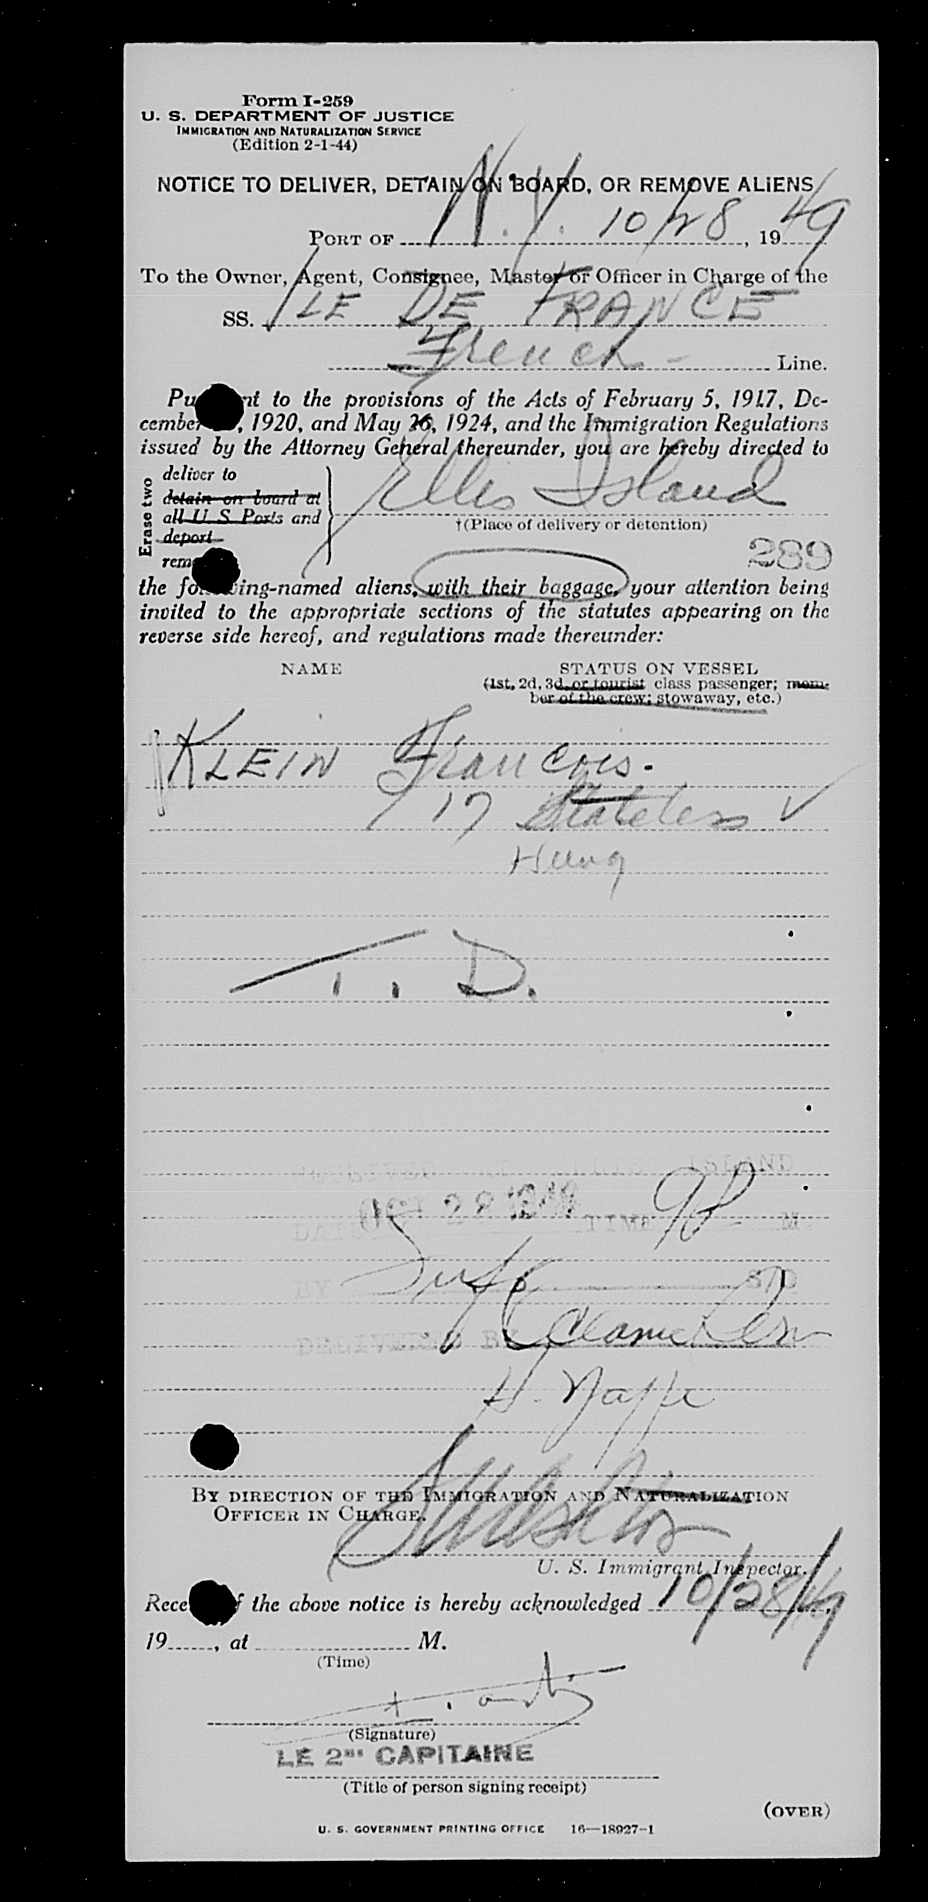 Form I-259
U. S. DEPARTMENT OF JUSTICE
IMMIGRATION AND NATURALIZATION SERVICE
(Edition 2-1-44)
NOTICE TO DELIVER, DETAIN ON BOARD, OR REMOVE ALIENS
PORT OF N.Y. 10/28, 1949
To the Owner, Agent, Consignee, Master or Officer in Charge of the
SS. ILE DE FRANCE
French Line.
Pu nt to the provisions of the Acts of February 5, 1917, De-
cember , 1920, and May 26, 1924, and the Immigration Regulations
issued by the Attorney General thereunder, you are hereby directed to
Erase two
deliver to
detain on board at
all U. S. Ports and
deport
rem
Ellis Island
†(Place of delivery or detention)
289
the fo ing-named aliens, with their baggage, your attention being
invited to the appropriate sections of the statutes appearing on the
reverse side hereof, and regulations made thereunder:
NAME
STATUS ON VESSEL
(1st, 2d, 3d, or tourist class passenger; mem-
ber of the crew; stowaway, etc.)
KLEIN Francois.
17 Stateless ✓
Hung
T. D.
RECEIVED AT ELLIS ISLAND
DATE OCT 28 1949 TIME 9P M
BY S/D
DELIVERED B
BY DIRECTION OF THE IMMIGRATION AND NATURALIZATION
OFFICER IN CHARGE.
U. S. Immigrant Inspector.
Rece f the above notice is hereby acknowledged 10/28/49
19 , at M.
(Time)
(Signature)
LE 2me CAPITAINE
(Title of person signing receipt)
(OVER)
U. S. GOVERNMENT PRINTING OFFICE 16—18927-1